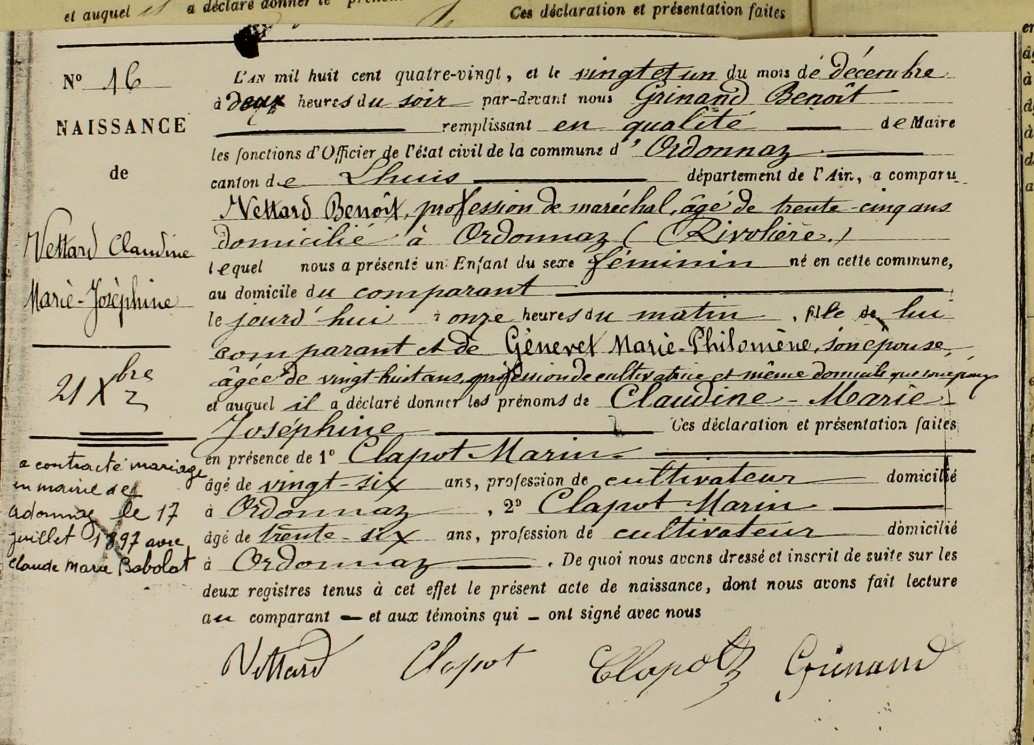 et auquel il a déclaré donner le prénom
Ces déclaration et présentation faites
N° 16
NAISSANCE
de
Vettard Claudine
Marie-Joséphine
21 Xbre
a contracté mariage
en mairie de
Ordonnaz le 17
juillet 1897 avec
Claude Marie Babolat
L'AN mil huit cent quatre-vingt, et le vingt et un du mois de décembre
à deux heures du soir par-devant nous Grinand Benoît
remplissant en qualité de Maire
les fonctions d'Officier de l'état civil de la commune d'Ordonnaz
canton de Lhuis département de l'Ain, a comparu
Vettard Benoît, profession de maréchal, âgé de trente-cinq ans
domicilié à Ordonnaz (Rivolière)
lequel nous a présenté un Enfant du sexe féminin né en cette commune,
au domicile du comparant
le jourd'hui à onze heures du matin, fille de lui
comparant et de Génevet Marie-Philomène, son épouse,
âgée de vingt-huit ans, profession de cultivatrice et même domicile que son époux
et auquel il a déclaré donner les prénoms de Claudine-Marie
Joséphine Ces déclaration et présentation faites
en présence de 1° Clapot Marin
âgé de vingt-six ans, profession de cultivateur domicilié
à Ordonnaz, 2° Clapot Marin
âgé de trente-six ans, profession de cultivateur domicilié
à Ordonnaz. De quoi nous avons dressé et inscrit de suite sur les
deux registres tenus à cet effet le présent acte de naissance, dont nous avons fait lecture
au comparant et aux témoins qui ont signé avec nous
Vettard Clapot Clapot Grinand